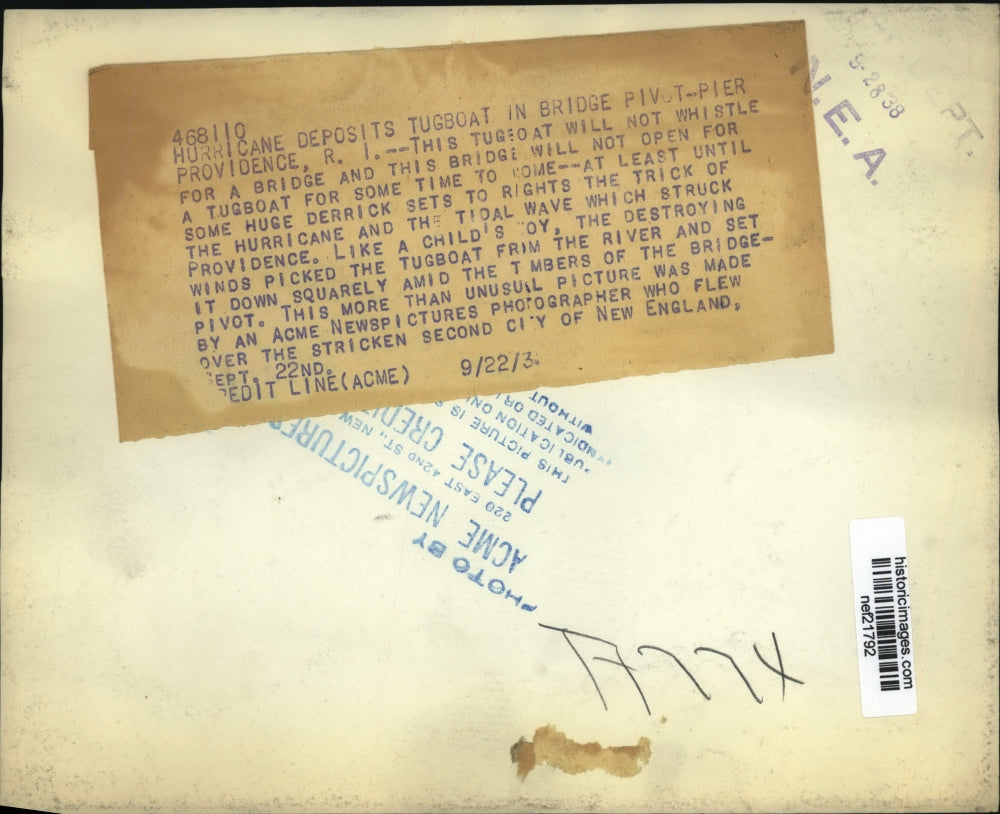 468110
HURRICANE DEPOSITS TUGBOAT IN BRIDGE PIVOT-PIER
PROVIDENCE, R. I.--THIS TUGBOAT WILL NOT WHISTLE
FOR A BRIDGE AND THIS BRIDGE WILL NOT OPEN FOR
A TUGBOAT FOR SOME TIME TO COME--AT LEAST UNTIL
SOME HUGE DERRICK SETS TO RIGHTS THE TRICK OF
THE HURRICANE AND THE TIDAL WAVE WHICH STRUCK
PROVIDENCE. LIKE A CHILD'S TOY, THE DESTROYING
WINDS PICKED THE TUGBOAT FRIM THE RIVER AND SET
IT DOWN SQUARELY AMID THE TIMBERS OF THE BRIDGE-
PIVOT. THIS MORE THAN UNUSUAL PICTURE WAS MADE
BY AN ACME NEWSPICTURES PHOTOGRAPHER WHO FLEW
OVER THE STRICKEN SECOND CITY OF NEW ENGLAND,
SEPT. 22ND.
CREDIT LINE(ACME) 9/22/3
N. E. A.
9-28 38
PT.
PHOTO BY
ACME NEWSPICTURES
220 EAST 42ND ST., NEW
PLEASE CREDIT
THIS PICTURE IS
PUBLICATION ONL
SYNDICATED OR
WITHOUT
historicimages.com
nef21792